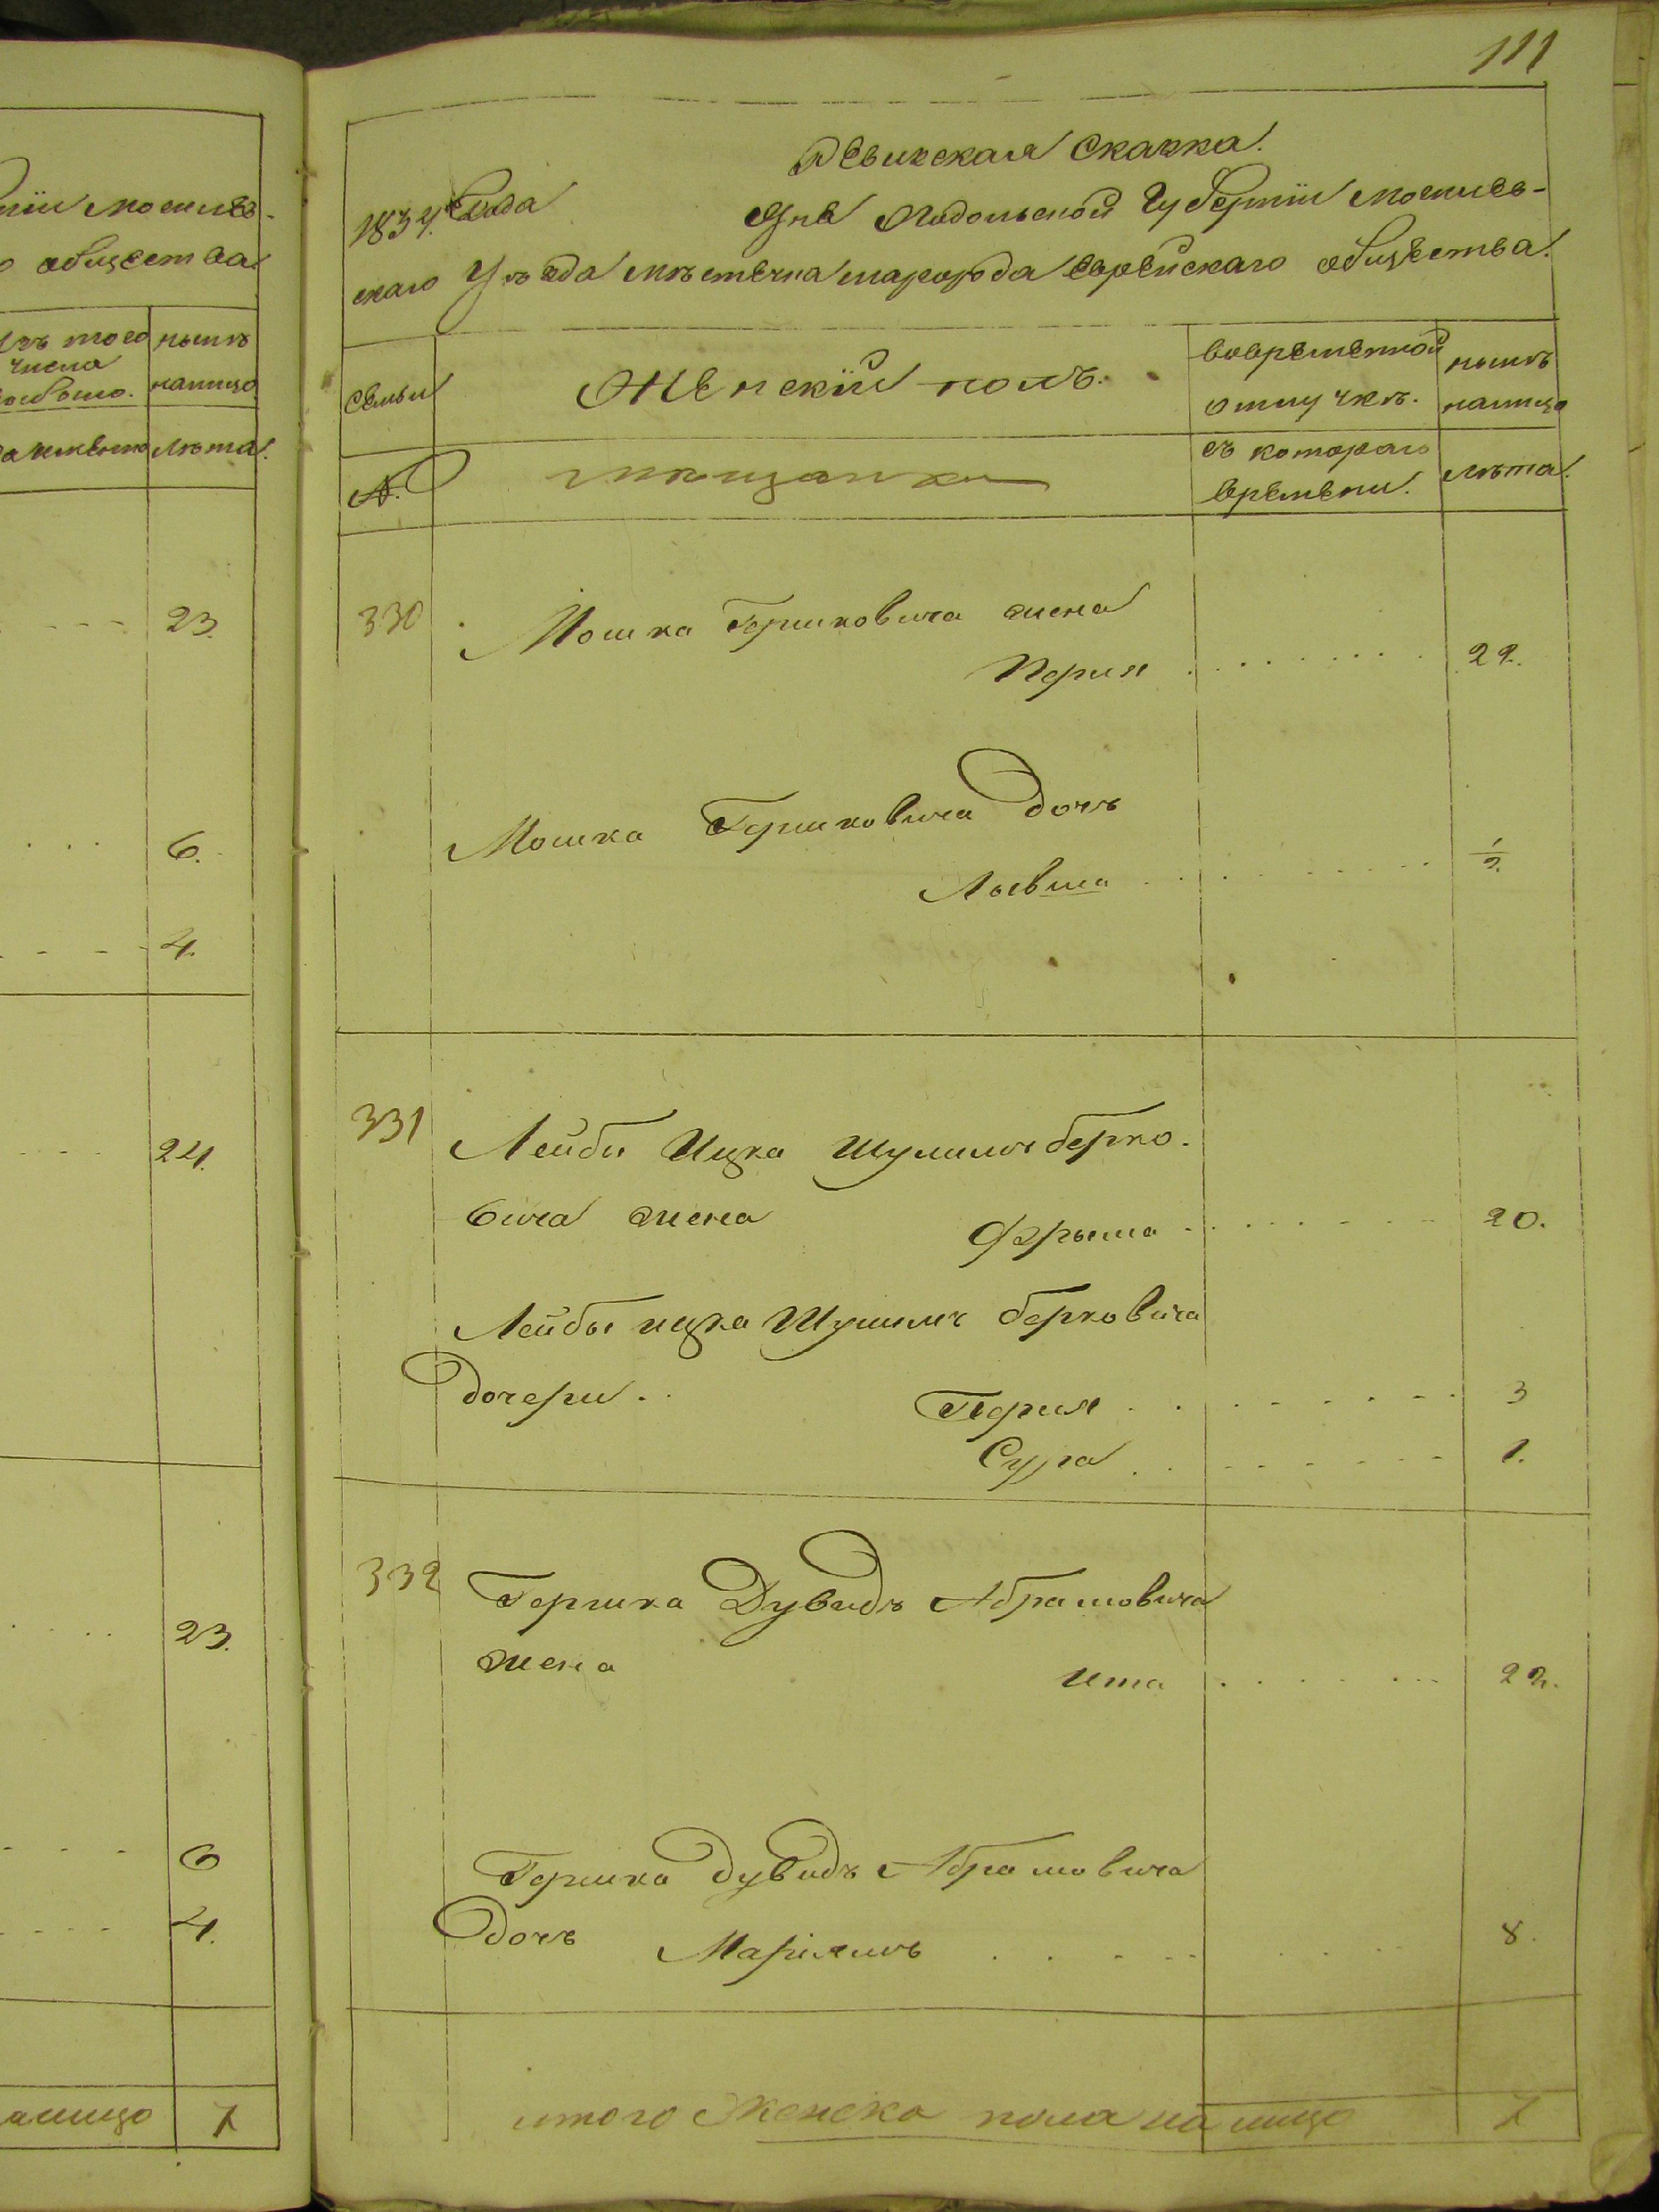 нiи могилев-
о общества.
изъ того
числа
выбыло.
нынѣ
налицо
лѣта.
23.
6.
4.
24.
23.
6
4.
налицо 7
111
Ревизская Сказка.
1834. Года Дня Подольской Губернiи могилев-
скаго Уѣзда мѣстечка шаргорода еврейскаго общества.
семьи
Женскiй полъ.
вовременной
отлучкѣ.
нынѣ
налицо
№.
мѣщанки
съ котораго
времени.
лѣта.
330 Мошка Гершковича жена
Перля 22.
Мошка Гершковича дочь
½
331 Лейбы Ицка Шулимъ берко-
вича жена
Фрыма 20.
Лейбы ицка Шулимъ берковича
дочери.
Перля 3
Сура 1.
332 Гершка Дувидъ Абрамовича
жена Ита 22.
Гершка дувидъ Абрамовича
дочь Марiямъ 8.
итого женска пола на лицо 7